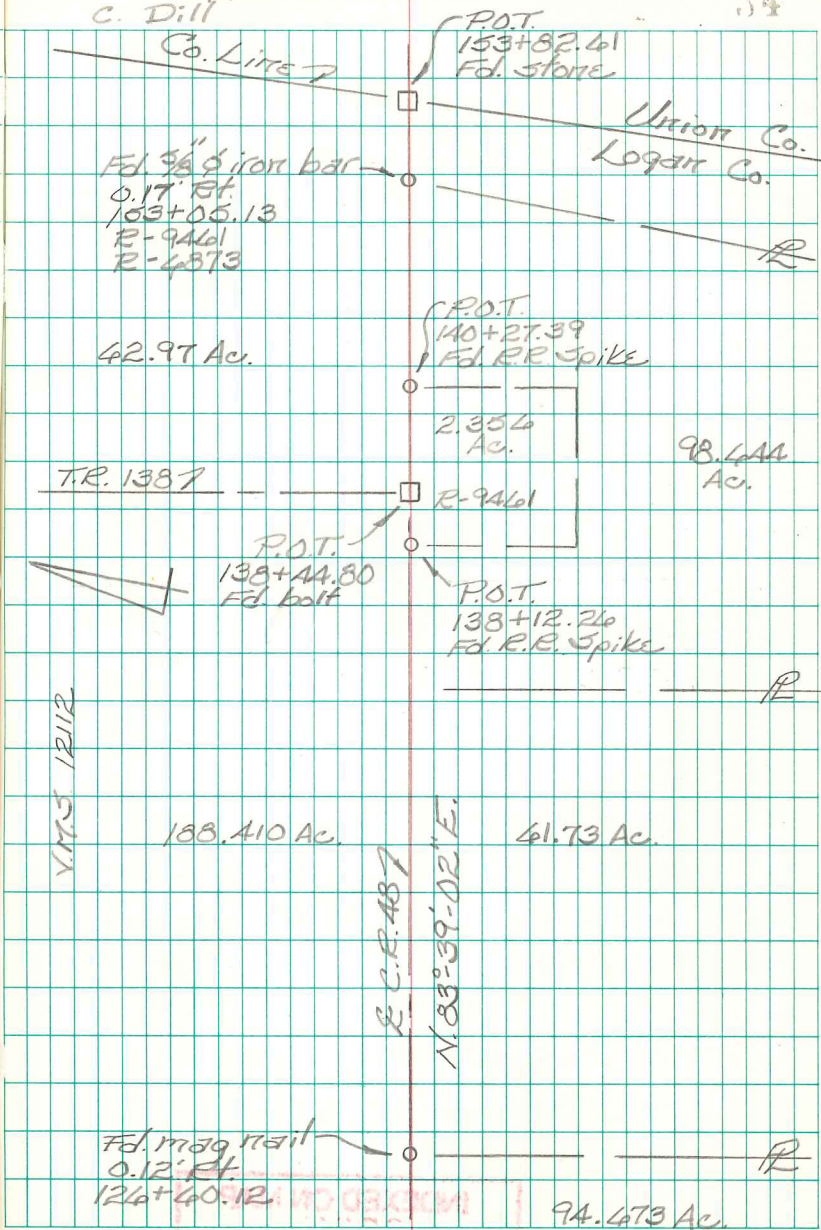 C. Dill
P.O.T.
153+82.61
Fd. stone
Co. Line
Union Co.
Logan Co.
Fd. 5/8" ø iron bar
0.17' Rt.
153+05.13
R-9461
R-6873
PL
P.O.T.
140+27.39
Fd. R.R. Spike
42.97 Ac.
2.356
Ac.
98.644
Ac.
T.R. 138
R-9461
P.O.T.
138+44.80
Fd. bolt
P.O.T.
138+12.26
Fd. R.R. Spike
PL
V.M.S. 12112
188.410 Ac.
61.73 Ac.
C.R. 48
N. 83°-39'-02" E.
Fd. mag nail
0.12' Rt.
126+60.12
PL
INDEXED ON
94.673 Ac.